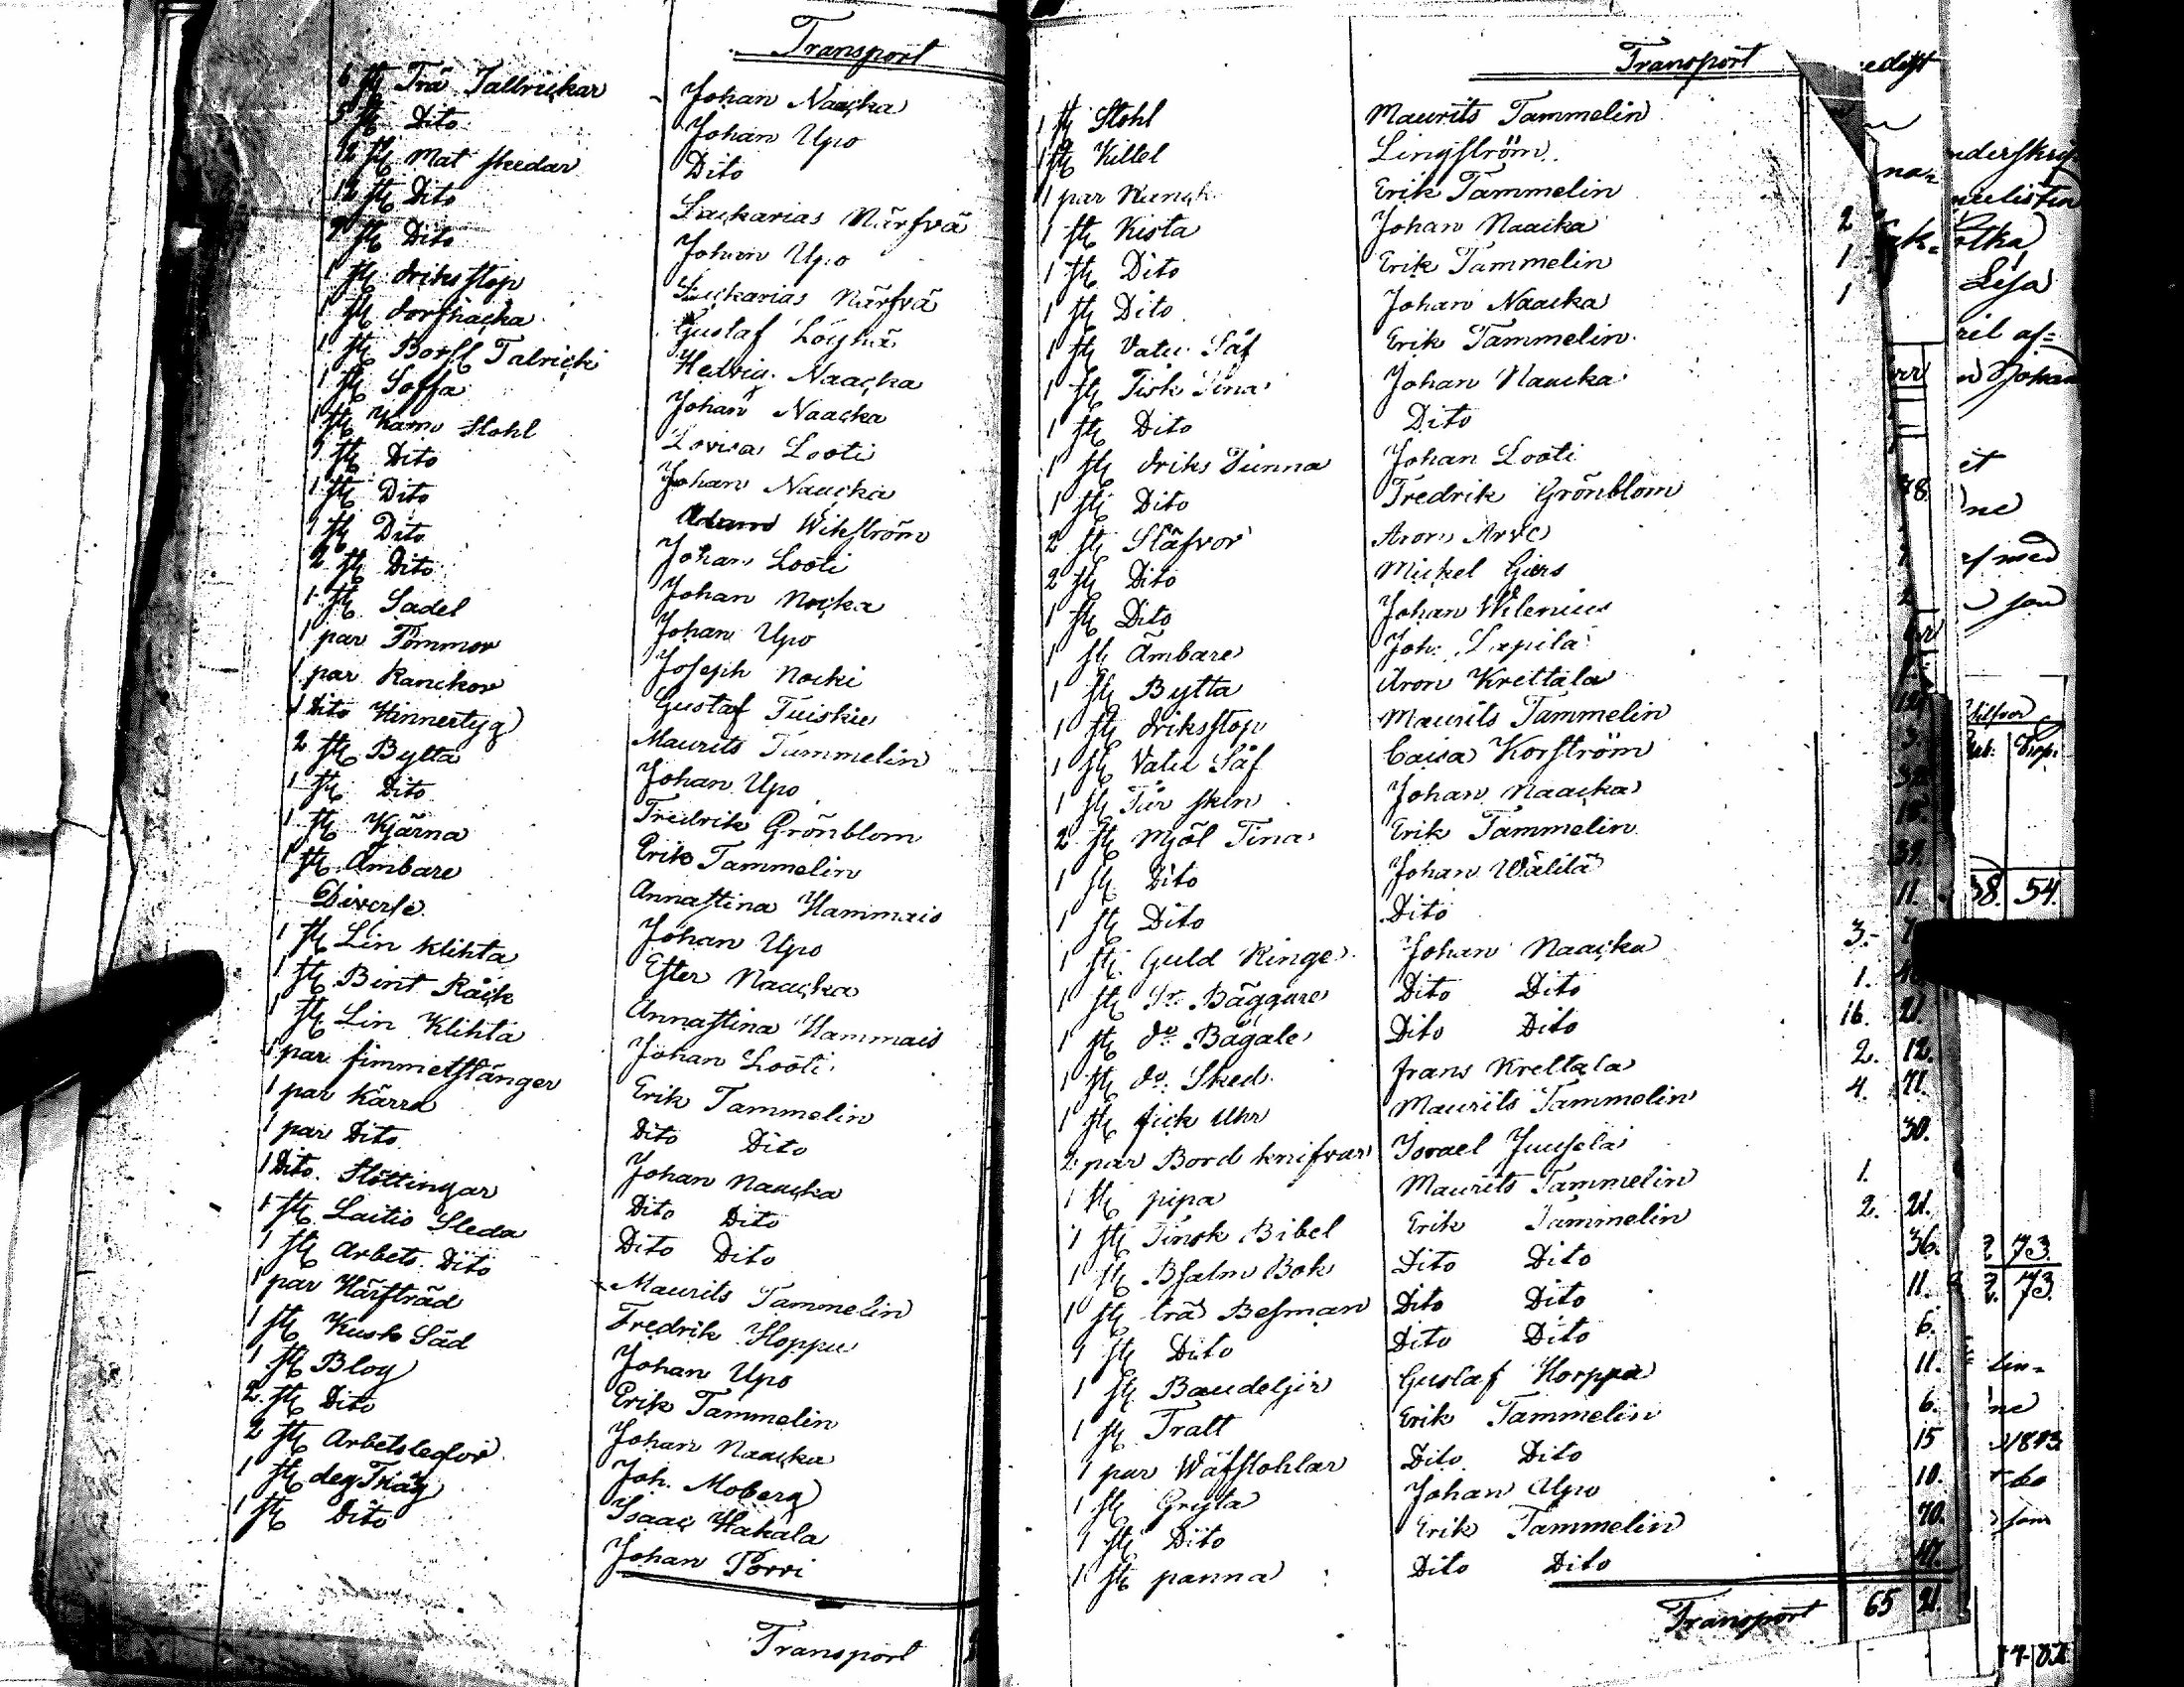 Transport
6 st Trä Tallrickar Johan Naacka
5 st Dito Johan Upo
12 st Mat skedar Dito
12 st Dito Sackarias Närfvä
7 st Dito Johan Upo
1 st driksstop Sackarias Närfvä
1 st dorfhacka Gustaf
1 st Borsl Talrick Hedvig Naacka
1 st Soffa Johan Naacka
1 st Karm Stohl Lovisa Looti
1 st Dito Johan Naacka
1 st Dito Adam Wikström
1 st Dito Johan Looti
2 st Dito Johan Nocka
1 st Sadel Johan Upo
1 par Tömmor Joseph Nocki
1 par Ranckor Gustaf Tuiskie
1 Dito Hinnertyg Maurits Tammelin
2 st Bytta Johan Upo
1 st Dito Fredrik Grönblom
1 st Kjärna Erik Tammelin
1 st Ämbare Annastina Hammais
Diverse Johan Upo
1 st Lin klihta Ester Naacka
1 st Lin Klihta Annastina Hammais
1 par timmerstänger Johan Looti
1 par Kärra Erik Tammelin
1 par Dito Dito Dito
1 Dito Stöttingar Johan Naacka
1 st Laitio Sleda Dito Dito
1 st Arbets Dito Dito Dito
1 par Härfträd Maurits Tammelin
1 st Kusk Säd Fredrik Hoppu
1 st Blog Johan Upo
2 st Dito Erik Tammelin
2 st Arbetsledor Johan Naacka
1 st deg Tråg Joh. Moberg
1 st Dito Isaac Hakala
Johan Torri
Transport
Transport
1 st Stohl Maurits Tammelin
1 st Kittel Lingström
1 par Erik Tammelin
1 st Kista Johan Naacka 2
1 st Dito Erik Tammelin 1
1 st Dito Johan Naacka 1
1 st Vatu Såf Erik Tammelin
1 st Fisk Tina Johan Naacka
1 st Dito Dito
1 st driks Tunna Johan Looti
1 st Dito Fredrik Grönblom
2 st Släfvor Aron Arve
2 st Dito Mickel Giers
1 st Dito Johan Wilenius
1 st Ämbare Joh. Lepilä
1 st Bytta Aron Krettala
1 st driksstop Maurits Tammelin
1 st Vatu Såf Caisa Korström
1 st Johan Naacka
2 st Mjöl Tina Erik Tammelin
1 st Dito Johan Wälilä
1 st Dito Dito 11.
1 st Guld Ringe Johan Naacka 3.
1 st Do Bäggare Dito Dito 1.
1 st do Bägale Dito Dito 16. 21.
1 st do Sked Frans Krettala 2. 12.
1 st fick Uhr Maurits Tammelin 4. 71.
2 par Bord knifvar Israel Juusela 30.
1 st pipa Maurits Tammelin 1.
1 st Finsk Bibel Erik Tammelin 2. 21.
1 st Psalm Bok Dito Dito 36.
1 st trä Besman Dito Dito 11.
1 st Dito Dito Dito 6.
1 st Gustaf Horppa 11.
1 st Tratt Erik Tammelin 6.
1 par Wäfstohlar Dito Dito 15
1 st Gryta Johan Upo 10.
1 st Dito Erik Tammelin 70.
1 st panna Dito Dito 17.
Transport 65 21.
Lisa
38. 54.
73.
73.